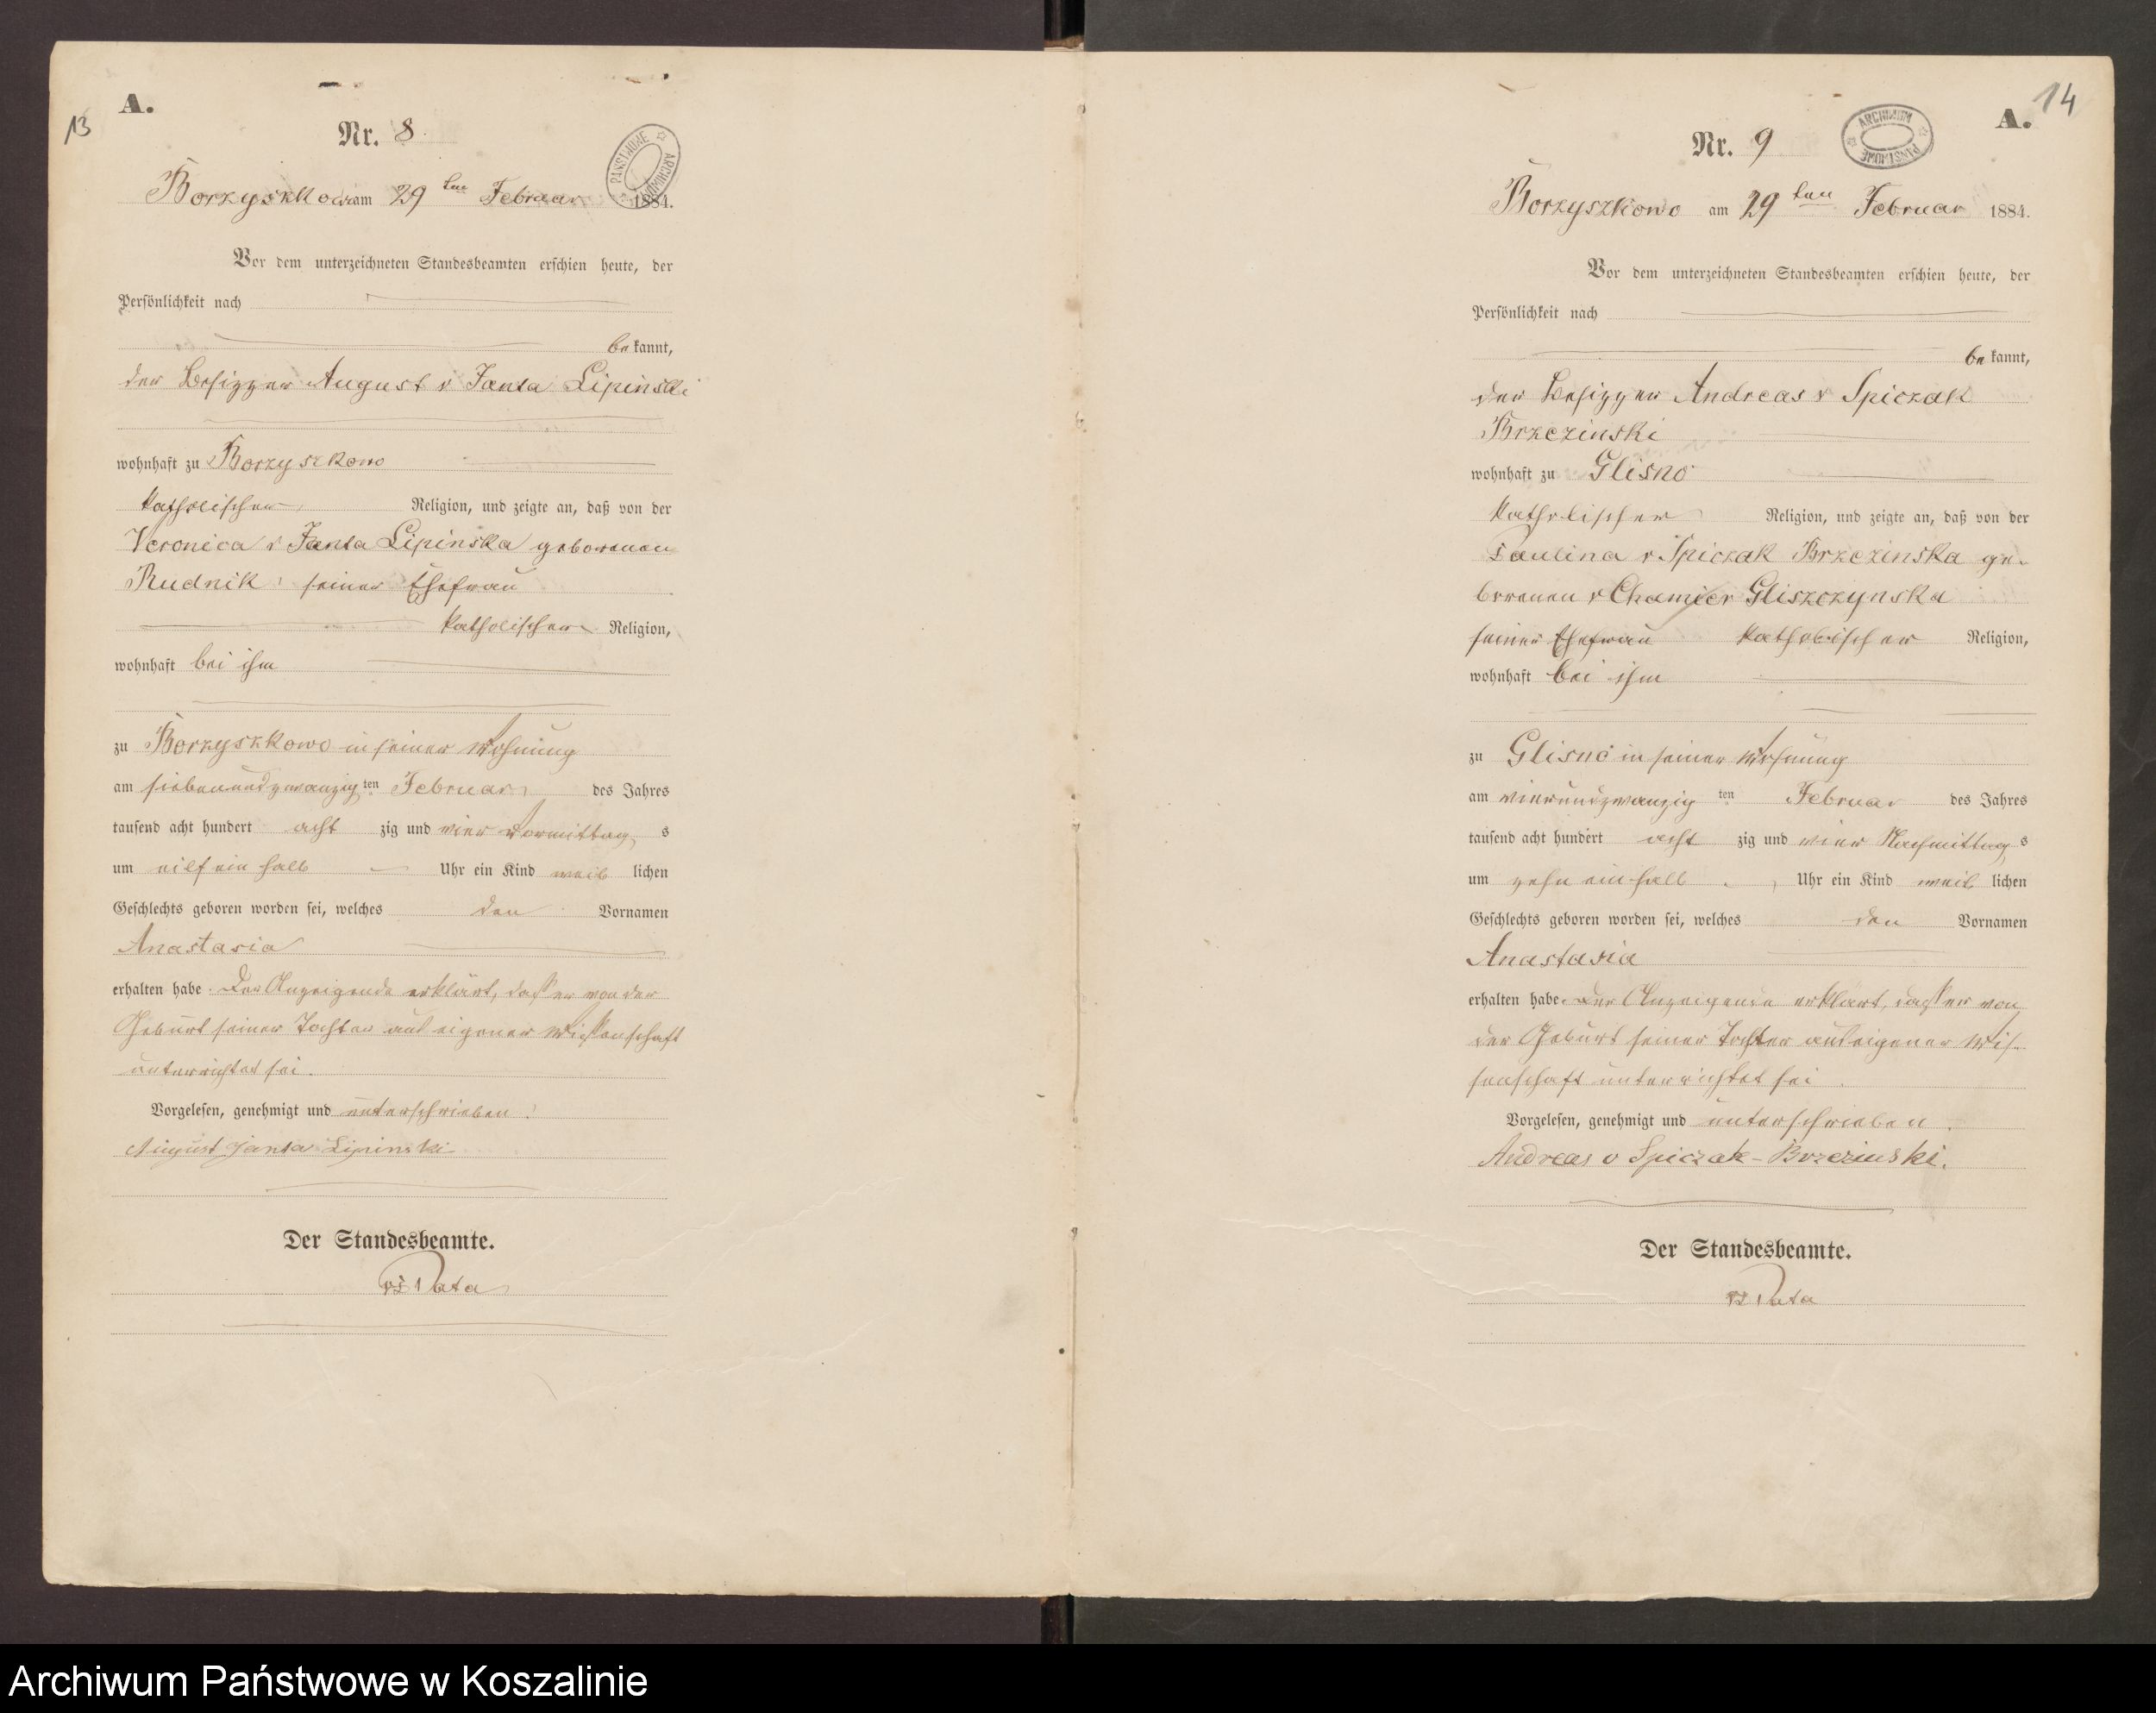 13
A.
Nr. 8
ARCHIWUM PAŃSTWOWE
Borzyszkowo am 29ten Februar 1884.
Vor dem unterzeichneten Standesbeamten erschien heute, der
Persönlichkeit nach
be kannt,
der Besitzer August v Janta Lipinski
wohnhaft zu Borzyszkowo
katholischer Religion, und zeigte an, daß von der
Veronica v Janta Lipinska geborenen
Rudnik seiner Ehefrau
katholischer Religion,
wohnhaft bei ihm
zu Borzyszkowo in seiner Wohnung
am siebenundzwanzig ten Februar des Jahres
tausend acht hundert acht zig und vier Vormittag s
um eilf ein halb Uhr ein Kind weib lichen
Geschlechts geboren worden sei, welches den Vornamen
Anastasia
erhalten habe. Der Anzeigende erklärt, dass er von der
Geburt seiner Tochter aus eigener Wissenschaft
unterrichtet sei.
Vorgelesen, genehmigt und unterschrieben.
August Janta Lipinski
Der Standesbeamte.
14
A.
Nr. 9
ARCHIWUM PAŃSTWOWE
Borzyszkowo am 29ten Februar 1884.
Vor dem unterzeichneten Standesbeamten erschien heute, der
Persönlichkeit nach
be kannt,
der Besitzer Andreas v Spiczak
Brzezinski
wohnhaft zu Glisno
katholischer Religion, und zeigte an, daß von der
Paulina v Spiczak Brzezinska ge-
borenen v Chamier Gliszczynska
seiner Ehefrau katholischer Religion,
wohnhaft bei ihm
zu Glisno in seiner Wohnung
am vierundzwanzig ten Februar des Jahres
tausend acht hundert acht zig und vier Nachmittag s
um zehn ein halb Uhr ein Kind weib lichen
Geschlechts geboren worden sei, welches den Vornamen
Anastasia
erhalten habe. Der Anzeigende erklärt, dass er von
der Geburt seiner Tochter aus eigener Wis-
senschaft unterrichtet sei.
Vorgelesen, genehmigt und unterschrieben.
Andreas v Spiczak-Brzezinski.
Der Standesbeamte.
Archiwum Państwowe w Koszalinie